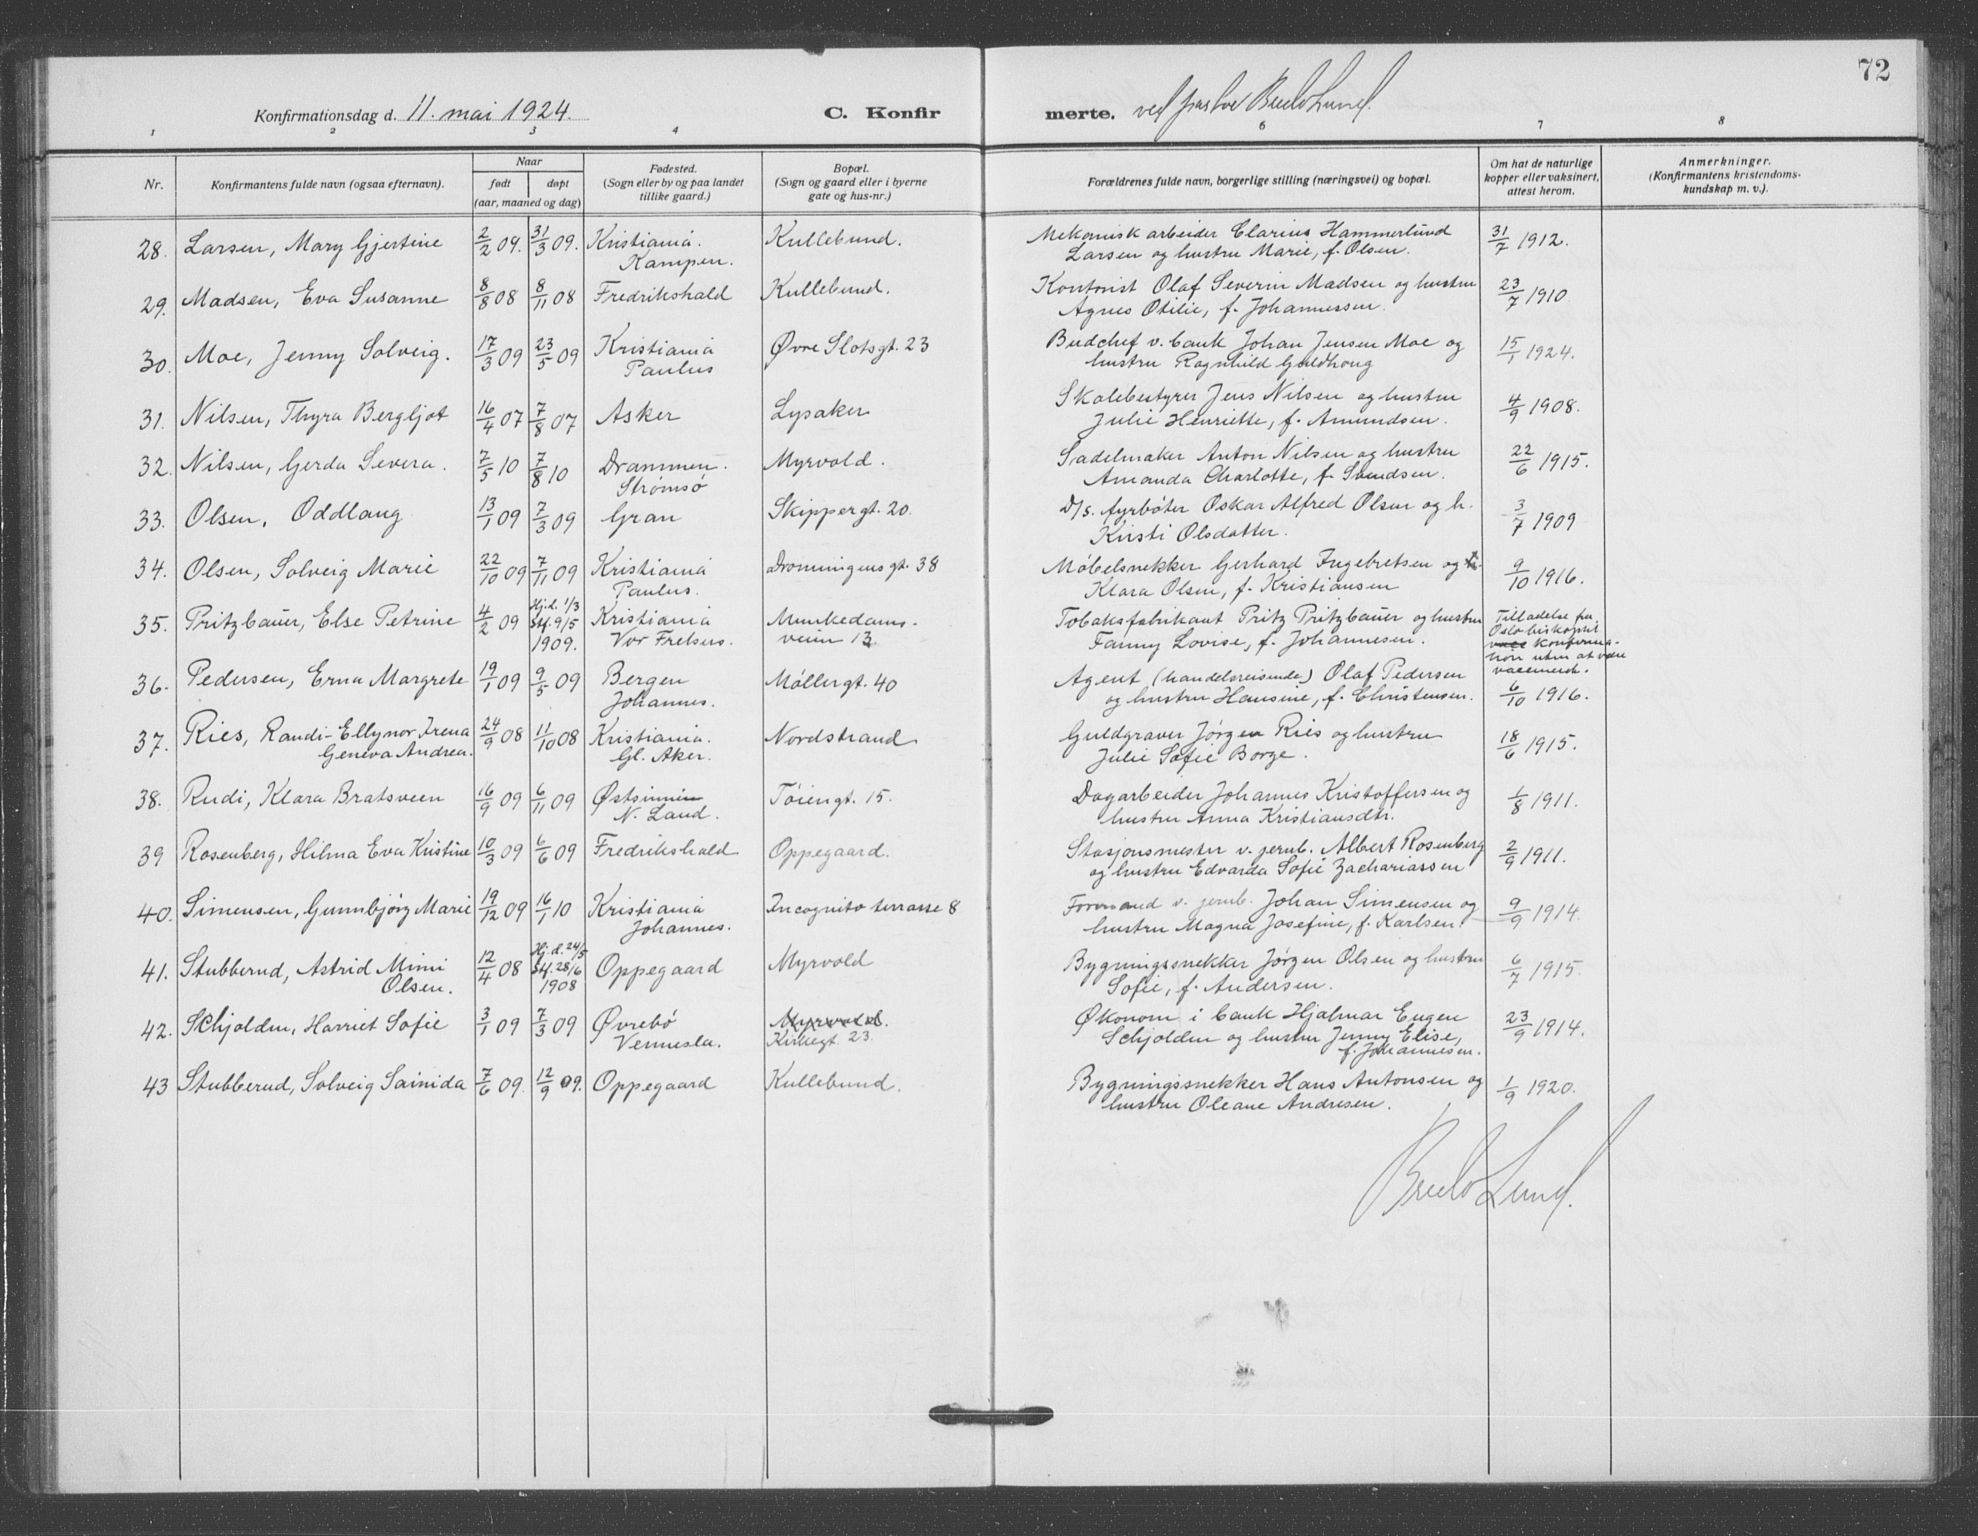 72
Konfirmationsdag d. 11. mai 1924. C. Konfirmerte. ved pastor Lund.
1 2 3 4 6 7 8
Nr. Konfirmantens fulde navn (ogsaa efternavn). Naar født døpt (aar, maaned og dag) Fødested. (Sogn eller by og paa landet tillike gaard.) Bopæl. (Sogn og gaard eller i byerne gate og hus-nr.) Forældrenes fulde navn, borgerlige stilling (næringsvei) og bopæl. Om hat de naturlige kopper eller vaksinert, attest herom. Anmerkninger. (Konfirmantens kristendomskundskap m. v.).
28. Larsen, Mary Gjertine 2/2 09. 31/3 09. Kristiania. Kampen. Kullebund. Mekanisk arbeider Clarius Hammerlund Larsen og hustru Marie, f. Olsen. 31/7 1912.
29. Madsen, Eva Susanne 8/8 08 8/11 08 Fredrikshald Kullebund. Kontorist Olaf Severin Madsen og hustru Agnes Otilie, f. Johannessen. 23/7 1910
30. Moe, Jenny Solveig. 17/3 09 23/5 09 Kristiania Paulus Øvre Slotsgt. 23 Budchef v. bank Johan Jensen Moe og hustru Ragnhild Guldhoug 15/1 1924.
31. Nilsen, Thyra Bergljot 16/4 07 7/8 07 Asker Lysaker Skolebestyrer Jens Nilsen og hustru Julie Henriette, f. Amundsen. 4/9 1908.
32. Nilsen, Gerda Severa. 7/5 10 7/8 10 Drammen. Strømsø Myrvold. Sadelmaker Anton Nilsen og hustru Amanda Charlotte, f. Svendsen. 22/6 1915.
33. Olsen, Oddlaug 13/1 09 7/3 09 Gran Skippergt. 20. D/s. fyrbøter Oskar Alfred Olsen og h. Kirsti Olsdatter. 3/7 1909
34. Olsen, Solveig Marie 22/10 09 7/11 09 Kristiania Paulus. Dronningens gt. 38 Møbelsnekker Gerhard Ingebretsen og h. Klara Olsen, f. Kristiansen 9/10 1916.
35. Pritzbauer, Else Petrine 4/2 09 Hj.d. 1/3 Stf. 9/5 1909. Kristiania Vor Frelsers. Munkedamsveien 13. Tobaksfabrikant Pritz Pritzbauer og hustru Fanny Lovise, f. Johannesen. Tilladelse fra Oslo biskop til konfirmation uten at være vaccinert.
36. Pedersen, Erna Margrete 19/1 09 9/5 09 Bergen Johannes. Møllergt. 40 Agent (handelsreisende) Olaf Pedersen og hustru Hansine, f. Christensen. 6/10 1916.
37. Ries, Randi-Ellynor Irena Geneva Andrea. 24/9 08 11/10 08 Kristiania. Gl. Aker. Nordstrand Guldgraver Jørgen Ries og hustru Julie Sofie Borge. 18/6 1915.
38. Rudi, Klara Bratsveen 16/9 09 6/11 09 Østsinnin N. Land. Tøiengt. 15. Dagarbeider Johannes Kristoffersen og hustru Anna Kristiansdtr. 1/8 1911.
39 Rosenberg, Hilma Eva Kristine 10/3 09 6/6 09 Fredrikshald Oppegaard. Stasjonsmester v. jernb. Albert Rosenberg og hustru Edvarda Sofie Zachariassen 2/9 1911.
40. Simensen, Gunnbjørg Marie 19/12 09 16/1 10 Kristiania Johannes. Incognito terrasse 8 Formand v. jernb. Johan Simensen og hustru Magna Josefine, f. Karlsen. 9/9 1914.
41. Stubberud, Astrid Mimi Olsen. 12/4 08 Hj.d. 24/5 Stf. 28/6 1908 Oppegaard Myrvold Bygningssnekker Jørgen Olsen og hustru Sofie, f. Andersen. 6/7 1915.
42. Schjolden, Harriet Sofie 3/1 09 7/3 09 Øvrebø Vennesla. Myrvold. Kirkegt. 23. Økonom i bank Hjalmar Eugen Schjolden og hustru Jenny Elise, f. Johannesen. 23/9 1914.
43 Stubberud, Solveig Sainida 7/6 09. 12/9 09. Oppegaard Kullebund. Bygningssnekker Hans Antonsen og hustru Oleane Andresen. 1/9 1920.
Lund.